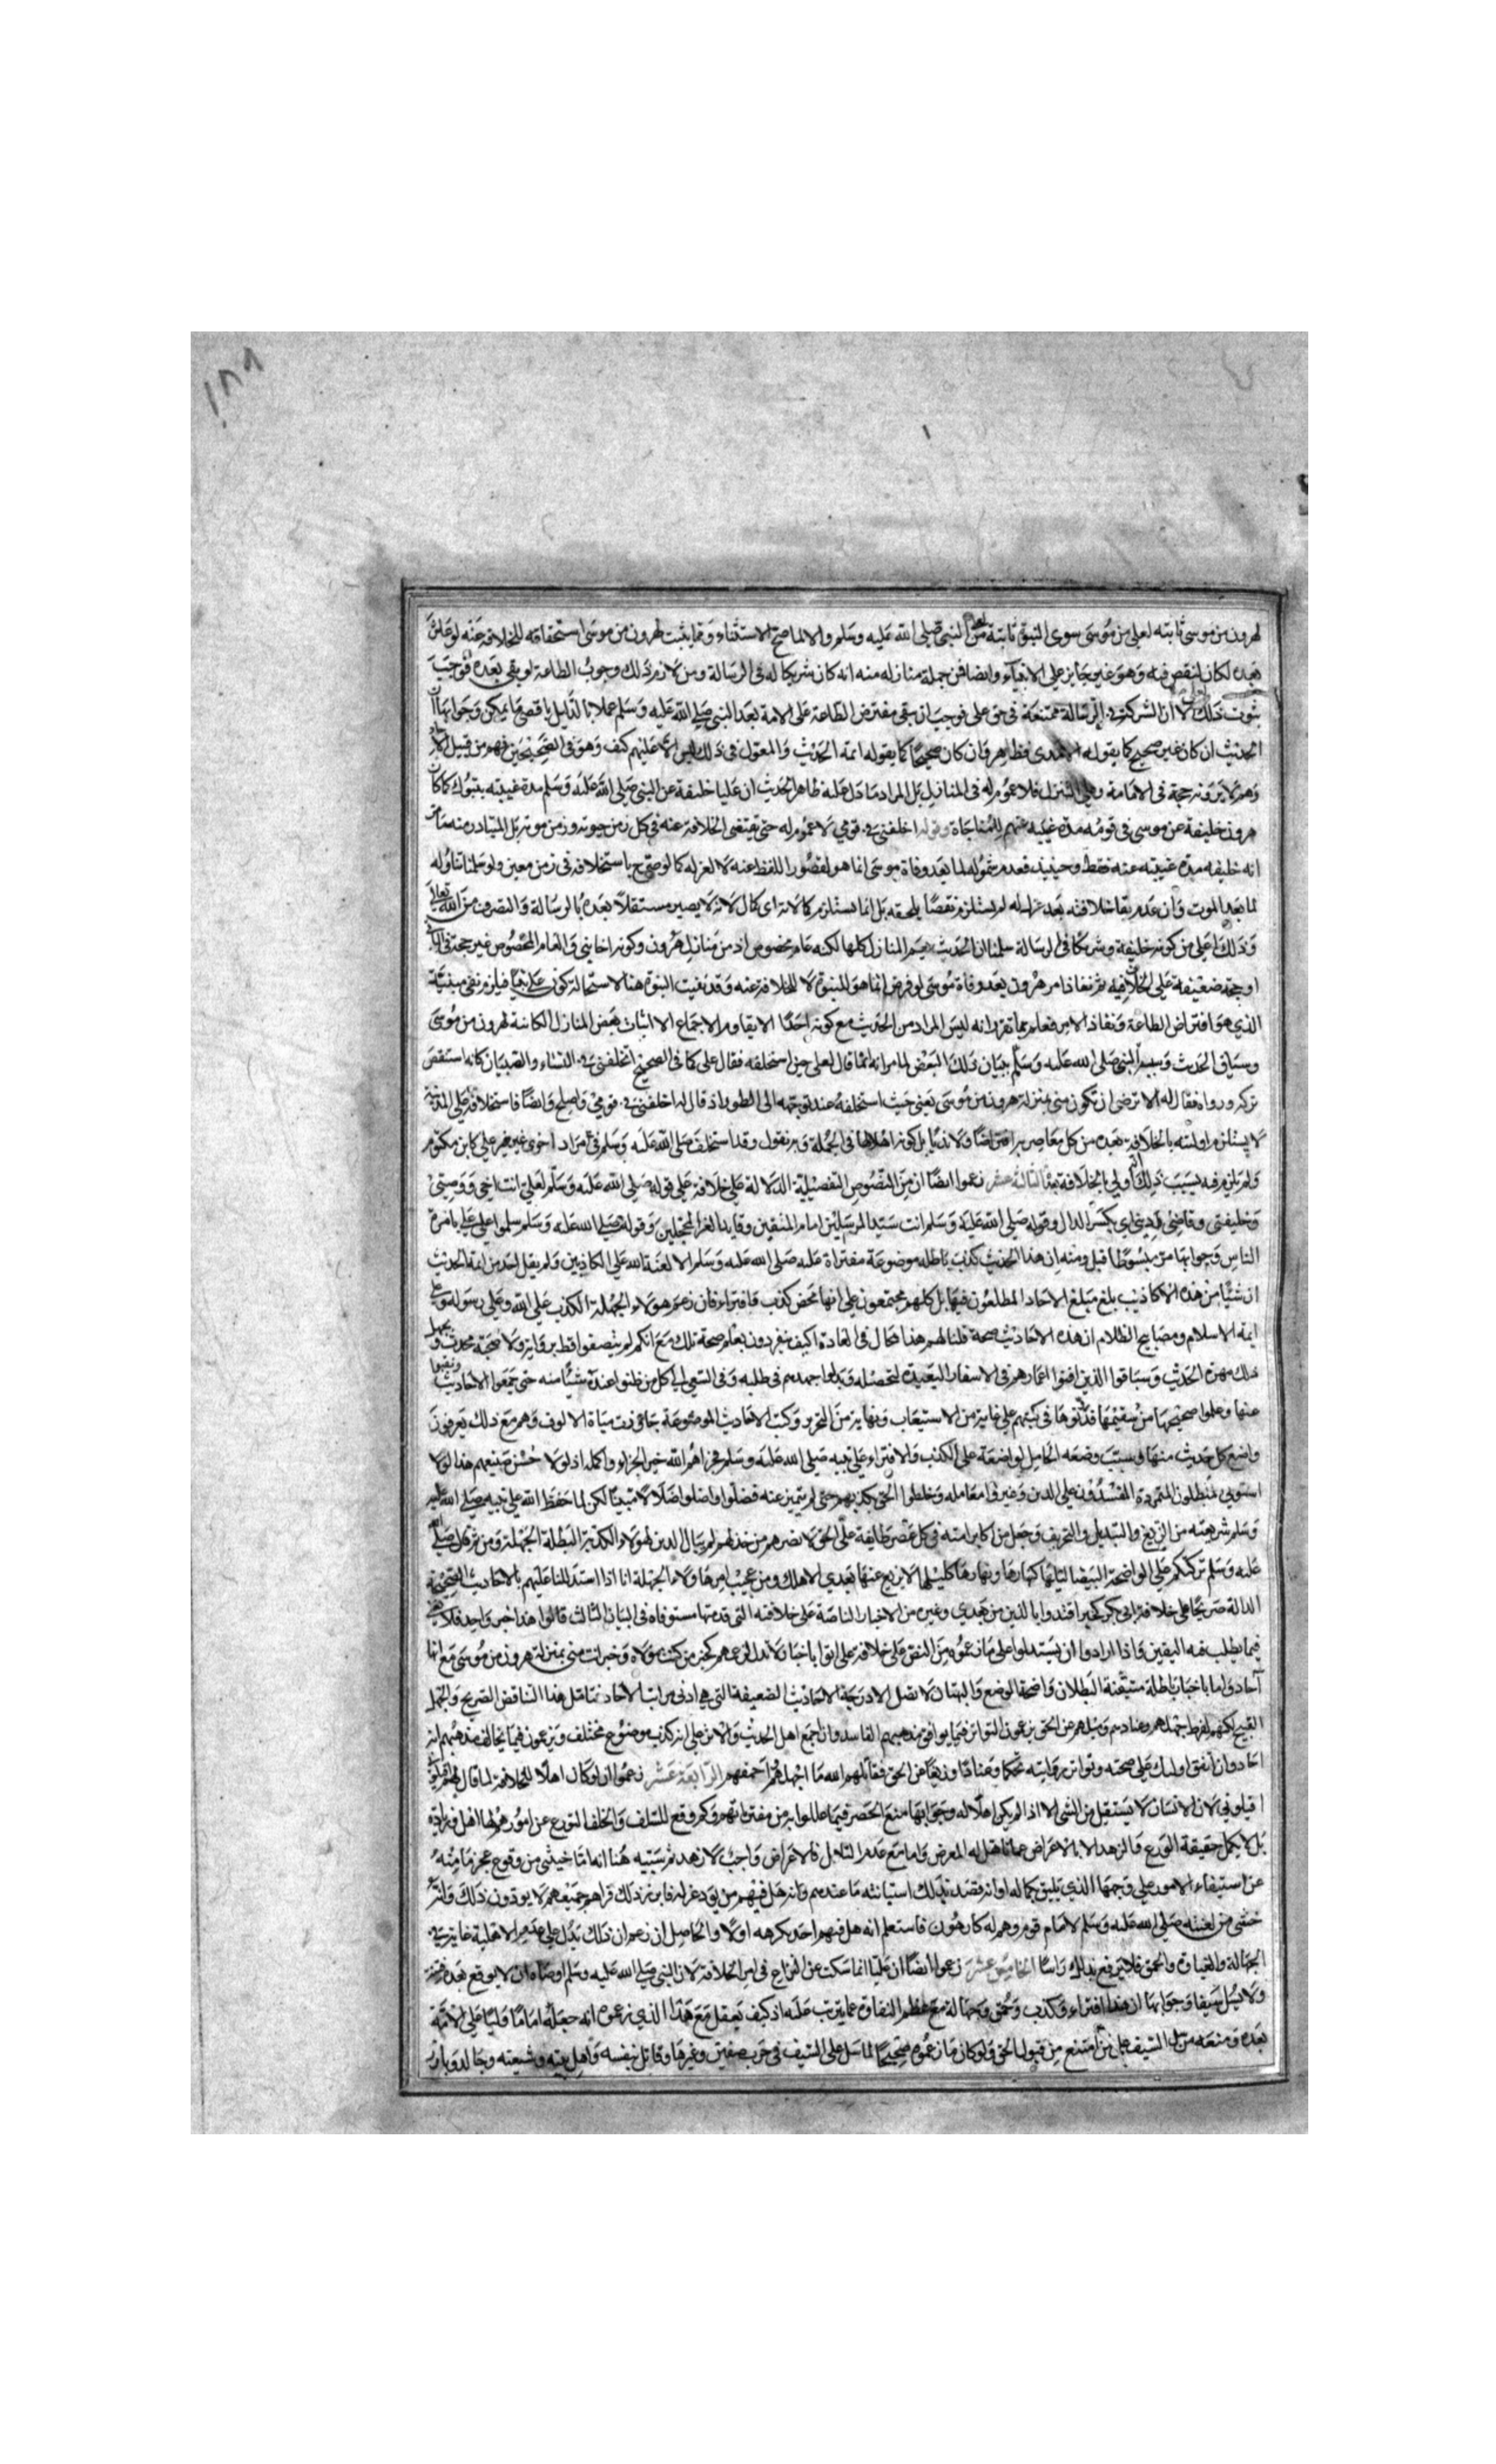 لهرون من موسى ثابته لعلي من موسى سوى النبوة ثابتة من النبي صلى الله عليه وسلم والا لما صح الاستثناء ومما يثبت لهرون من موسى استحقاقه للخلافة عنه لو عاش
بعده لكان لنقص فيه وهو غير جايز على الانبياء وايضا فمن جملة منازله منه انه كان شريكا له في الرسالة ومن لازم ذلك وجوب الطاعة لو بقي بعده فوجب
ثبوت ذلك لا ان الشركة في الرسالة ممتنعة في حق علي فوجب ان يبقى مفترض الطاعة على الامة بعد النبي صلى الله عليه وسلم عملا بالدليل باقصى ما يمكن وجوابها ان
الحديث ان كان غير صحيح كما يقوله الامدي فظاهر وان كان صحيحا كما يقوله ائمة الحديث والمعول في ذلك ليس الا عليهم كيف وهو في الصحيحين فهو من قبيل الاحاد
وهم لا يرونه حجة في الامامة وعلى التنزل فلا عموم له في المنازل بل المراد ما دل عليه ظاهر الحديث ان عليا خليفة عن النبي صلى الله عليه وسلم مدة غيبته بتبوك كما كان
هرون خليفة عن موسى في قومه مدة غيبته عنهم للمناجاة وقوله اخلفني في قومي لا عموم له حتى يقتضي الخلافة عنه في كل زمن حيوته وزمن موته بل المتبادر منه ما مر
انه خليفه مدة غيبته عنه فقط وحينئذ فعدم شموله لما بعد وفاة موسى انما هو لقصور اللفظ عنه لا لعزله كما لو صرح باستخلافه في زمن معين ولو سلمنا تناوله
لما بعد الموت وان عدم بقا خلافته بعد عزل له لم يستلزم نقصا يلحقه بل انما يستلزم كمالا له اي كمال لانه لا يصير مستقلا بعده بالرسالة والتصرف من الله تعالى
وذلك اعلى من كونه خليفة وشريكا في الرسالة سلمنا ان الحديث يعم المنازل كلها لكنه عام مخصوص اذ من منازل هرون كونه اخا نبي والعام المخصوص غير حجة في الباقي
او حجة ضعيفة على الخلاف فيه ثم نفاذ امر هرون بعد وفاة موسى لو فرض انما هو للنبوة لا للخلافة عنه وقد نفيت النبوة هنا لاستحالة كون علي نبيا فيلزم نفي مسببه
الذي هو افتراض الطاعة ونفاذ الامر فعلم بما تقرر انه ليس المراد من الحديث مع كونه احادا لا يقاوم الاجماع الا اثبات بعض المنازل الكائنة لهرون من موسى
وسياق الحديث وسببه يبينان ذلك البعض لما مر انه انما قال لعلي حين استخلفه فقال علي كما في الصحيح اتخلفني في النساء والصبيان كانه استنقص
تركه وراه فقال له الا ترضى ان تكون مني بمنزلة هرون من موسى يعني حيث استخلفه عند توجهه الى الطور اذ قال له اخلفني في قومي واصلح وايضا فاستخلافه على المدينة
لا يستلزم اولويته بالخلافة بعده من كل معاصريه افتراضا ولا ندبا بل كونه اهلا لها في الجملة وبه نقول وقد استخلف صلى الله عليه وسلم في مرار اخرى غير علي كابن مكتوم
ولم يلزم فيه بسبب ذلك انه اولى بالخلافة بعده الشبهة الثالثة عشر زعموا ايضا ان من النصوص التفصيلية الدالة على خلافة علي قوله صلى الله عليه وسلم لعلي انت اخي ووصيي
وخليفتي وقاضي ديني اي بكسر الدال وقوله صلى الله عليه وسلم انت سيد المرسلين امام المتقين وقايد الغر المحجلين وقوله صلى الله عليه وسلم سلموا على علي بامرة
الناس وجوابها مر مبسوطا قبل ومنه ان هذا الحديث كذب باطله موضوعة مفتراة عليه صلى الله عليه وسلم الا لعنة الله على الكاذبين ولم يقل احد من ائمة الحديث
ان شيئا من هذه الاكاذيب بلغ مبلغ الاحاد المطلعون فيها بل كلهم مجتمعون على انها محض كذب وافتراء فان زعم هولاء الجهلة الكذبة على الله وعلى رسوله وعلى
ايمة الاسلام ومصابيح الظلام ان هذه الاحاديث صحة قلنا لهم هذا محال في العادة اذ كيف ينفردون بعلم صحة تلك مع انكم لم تتصفوا قط برواية ولا صحبة محدث ويجهل
ذلك مهرة الحديث وسباقوا الذين افنوا اعمارهم في الاسفار البعيدة لتحصيله وبذلوا جهدهم في طلبه وفي السعي الى كل من ظنوا عنده شيئا منه حتى جمعوا الاحاديث ونقبوا
عنها وعلموا صحيحها من سقيمها ودونوها في كتبهم على غاية من الاستيعاب ونهاية من التحرير وكتب الاحاديث الموضوعة جاوزت مياة الالوف وهم مع ذلك يعرفون
واضع كل حديث منها وسبب وضعه الحامل لواضعه على الكذب والافتراء على نبيه صلى الله عليه وسلم فجزاهم الله خير الجزاء واكمله اذ لولا حسن صنيعهم هذا لولا
استولى المبطلون المتمردة المفسدون على الدين وغيروا معالمه وخلطوا الحق بكذبهم حتى لم يتميز عنه فضلوا واضلوا ضلالا مبينا لكن لما حفظ الله على نبيه صلى الله عليه
وسلم شريعته من الزيغ والتبديل والتحريف وجعل من اكابر امته في كل عصر طايفة على الحق لا يضرهم من خذلهم لم يبال الدين لهولاء الكذبة البطلة الجهلة ومن ثم قال صلى الله
عليه وسلم تركتكم على الواضحة البيضا ليلها كنهارها ونهارها كليلها لا يزيغ عنها بعدي الا هالك ومن عجيب امر هاولاء الجهلة انا اذا استدللنا عليهم بالاحاديث الصحيحة
الدالة صريحا على خلافة ابي بكر كخبر اقتدوا بالذين من بعدي وغيره من الاخبار الناصة على خلافته التي قدمتها مستوفاة في الباب الثالث قالوا هذا خبر واحد فلا يغني
فيما يطلب فيه اليقين واذا ارادوا ان يستدلوا على ما زعموه من النص على خلافة علي اتوا باخبار لا تدل لزعمهم كخبر من كنت مولاه وخبر انت مني بمنزلة هرون من موسى مع انها
آحاد واما باخبار باطلة متيقنة البطلان واضحة الوضع والبهتان لا تصل الا درجة الاحاديث الضعيفة التي هي ادنى مراتب الاحاد فتامل هذا التناقض الصريح والجهل
القبيح لكنهم لفرط جهلهم وعنادهم وميلهم عن الحق يزعمون التواتر فيما يوافق مذهبهم الفاسد وان اجمع اهل الحديث والاثر على انه كذب موضوع مختلف ويزعمون فيما يخالف مذهبهم انه
احاد وان اتفق اولئك على صحته وتواتر رواته تحكما وعنادا وزيغا عن الحق فقاتلهم الله ما اجهلهم واحمقهم الرابعة عشر زعموا انه لو كان اهلا للخلافة لما قال لهم اقيلوني
اقيلوني لان الانسان لا يستقيل من الشي الا اذا لم يكن اهلا له وجوابها منع الحصر فيما عللوا به من مفترياتهم وكم وقع للسلف والخلف التورع عن امور هم لها اهل وزيادة
بل لا يكمل حقيقة الورع والزهد الا بالاعراض عما تاهل له المعرض واما مع عدم التاهل فالاعراض واجب لا زهد ثم سببه هنا انه اما خشي من وقوع عجز ما منه
عن استيفاء الامور على وجهها الذي يليق بكماله او انه قصد بذلك استبانة ما عندهم وانه هل فيهم من يود عزله فابرز ذلك فراهم جميعهم لا يودون ذلك وانه
خشي من لعنته صلى الله عليه وسلم لامام قوم وهم له كارهون فاستعلم انه هل فيهم احد يكرهه او لا والحاصل ان زعم ان ذلك يدل على عدم الاهلية غاية في
الجهالة والغباوة والحمق فلا ترفع بذلك راسا الخامس عشر زعموا ايضا ان عليا انما سكت عن النزاع في امر الخلافة لان النبي صلى الله عليه وسلم اوصاه ان لا يوقع بعده فتنة
ولا يسل سيفا وجوابها ان هذا افتراء وكذب وحمق وجهالة مع عظم الغباوة عما يترتب عليه اذ كيف يعقل مع هذا الذي زعموه انه جعله اماما واليا على الامة
بعده ومنعه من سل السيف على من امتنع من قبول الحق ولو كان ما زعموه صحيحا لما سل علي السيف في حرب صفين وغيرها وقاتل بنفسه واهل بيته وشيعته وجالد وبارز